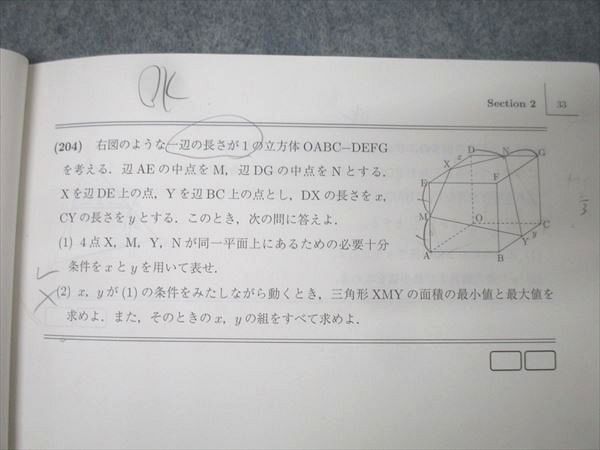 OK
Section 2 33
(204) 右図のような一辺の長さが1の立方体OABC−DEFG
を考える.辺AEの中点をM,辺DGの中点をNとする.
Xを辺DE上の点,Yを辺BC上の点とし,DXの長さをx,
CYの長さをyとする.このとき,次の問に答えよ.
(1) 4点X,M,Y,Nが同一平面上にあるための必要十分
条件をxとyを用いて表せ.
(2) x,yが(1)の条件をみたしながら動くとき,三角形XMYの面積の最小値と最大値を
求めよ.また,そのときのx,yの組をすべて求めよ.
D N G
X x
E F
M
O C
Y y
A B